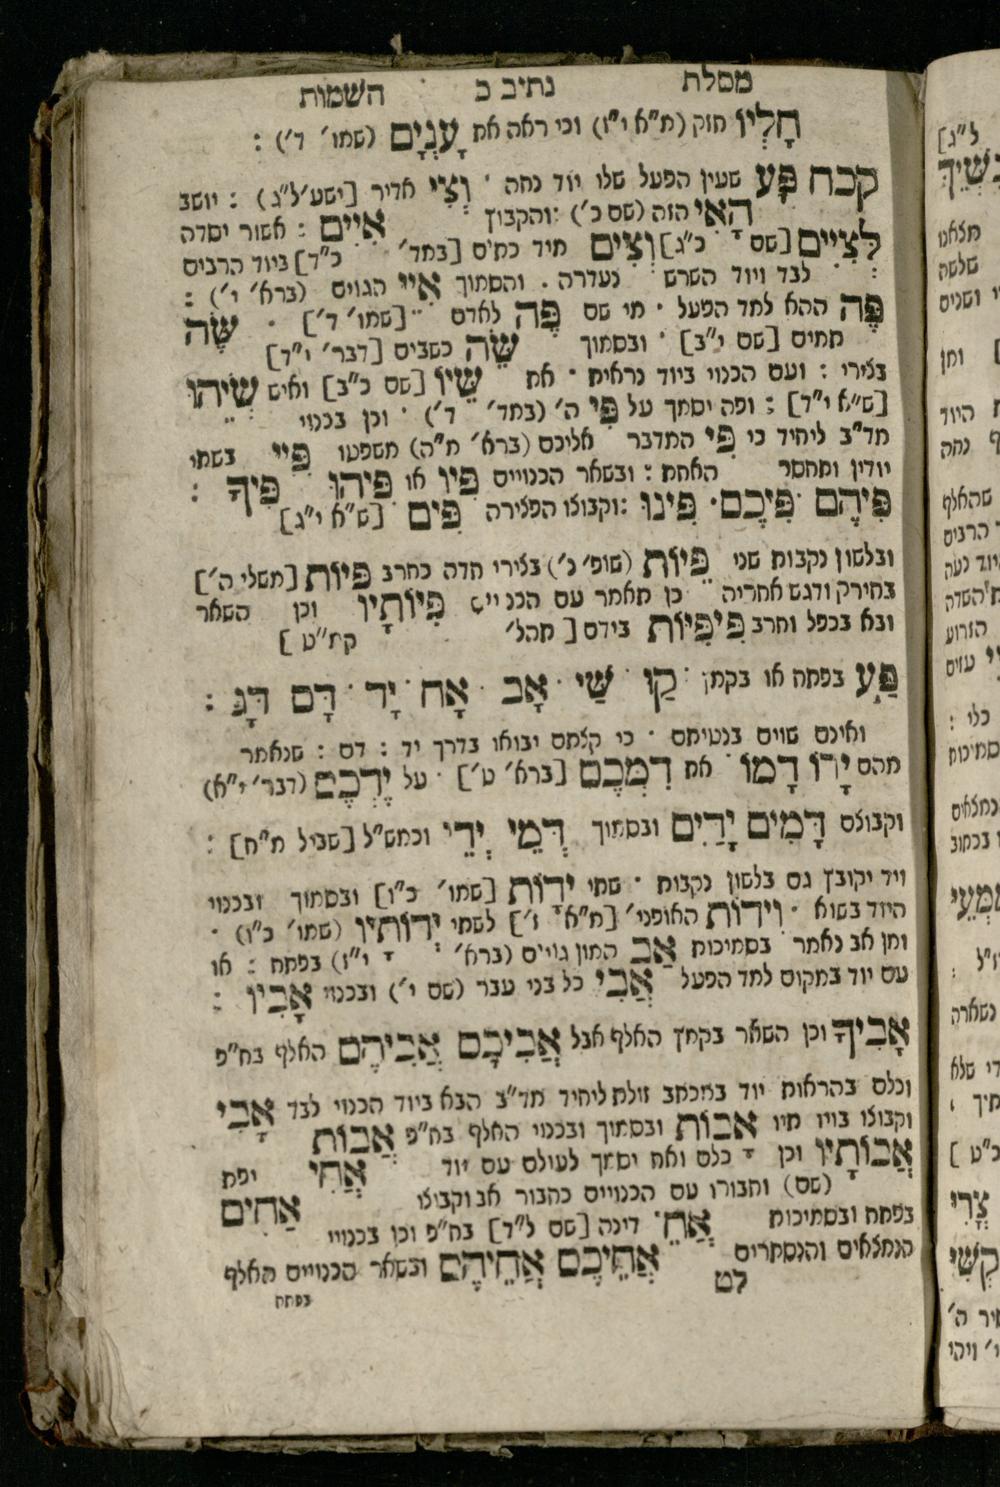 מסלת נתיב כ השמות
חָלְיוֹ חזק (מ״א י״ז) וכי ראה את עָנְיָם (שמו׳ ד׳) :
קכח פִּע שעין הפעל שלו יוד נחה ׳ וְצִי אדיר [ישע׳ ל״ג) : יושב
הָאִי הזה (שם כ׳) : והקבוץ אִיִּים : אשור יסדה
לְצִיִּים [שם כ״ג] וְצִים מיד כתים [במד׳ כ״ד] ביוד הרבים
לבד ויוד השרש נעדרה . והסמוך אִיֵּי הגוים (ברא׳ י׳) :
פֶּה ההא למד הפעל ׳ מי שם פֶּה לאדם [שמו׳ ד׳] ׳ שֶׂה
תמים [שם י״ב] ׳ ובסמוך שֵׂה כשבים [דבר׳ י״ד]
בצירי : ועם הכנוי ביוד נראית ׳ את שֵׂיוֹ [שם כ״ב] ואיש שֵׂיֵהוּ
[ש״א י״ד] : ופה יסמך על פִּי ה׳ (במד׳ ד׳) ׳ וכן בכנוי
מד״ב ליחיד כי פִּי המדבר אליכם (ברא׳ מ״ה) משפטו פִּיי בשתי
יודין ותחסר האחת : ובשאר הכנויים פִּיו או פִּיהוּ פִּיךָ :
פִּיהֶם פִּיכֶם ׳ פִּינוּ : וקבוצו הפצירה פִּים [ש״א י״ג]
ובלשון נקבות שני פֵּיוֹת (שופ׳ ג׳) בצירי חדה כחרב פִּיּוֹת [משלי ה׳]
בחירק ודגש אחריה כן תאמר עם הכנויי׳ פִּיּוֹתָיו וכן השאר
ובא בכפל וחרב פִּיפִיּוֹת בידם [תהל׳ קמ״ט]
פַּע בפתח או בקמץ ׳ קַו ׳ שַׁי ׳ אָב ׳ אָח ׳ יָד ׳ דָּם דָּג :
ואינם שוים בנטיתם ׳ כי קצתם יבואו בדרך יד : דם : שנאמר
מהם יָדוֹ דָמוֹ ׳ את דִּמְכֶם [ברא׳ ט׳] ׳ על יֶדְכֶם (דבר׳ י״א)
וקבוצם דָּמִים יָדַיִם ובסמוך דְּמֵי יְדֵי וכמש״ל [שביל מ״ח] :
ויד יקובץ גם בלשון נקבות ׳ שתי יָדוֹת [שמו׳ כ״ו] ובסמוך ובכנוי
היוד בשוא ׳ וִידוֹת האופני׳ [מ״א ז׳] לשתי יְדוֹתָיו (שמו׳ כ״ו) ׳
ומן אב נאמר בסמיכות אַב המון גויים (ברא׳ י״ז) בפתח : או
עם יוד במקום למד הפעל אֲבִי כל בני עבר (שם י׳) ובכנוי אָבִיו :
אָבִיךָ וכן השאר בקמץ האלף אבל אֲבִיכֶם אֲבִיהֶם האלף בח״פ
וכלם בהראות יוד במכתב זולת ליחיד מד״ב הבא ביוד הכנוי לבד אָבִי
וקבוצו בויו תיו אָבוֹת ובסמוך ובכנוי האלף בח״פ אֲבוֹת
אֲבוֹתָיו וכן כלם ואח יסמך לעולם עם יוד אֲחִי יפת
(שם) וחבורו עם הכנויים כחבור אב וקבוצו אַחִים
בפתח ובסמיכות אֲחֵי דינה [שם ל״ד] בח״פ וכן בכנויי
הנמצאים והנסתרים אֲחֵיכֶם אֲחֵיהֶם ובשאר הכנויים האלף
לט בפתח